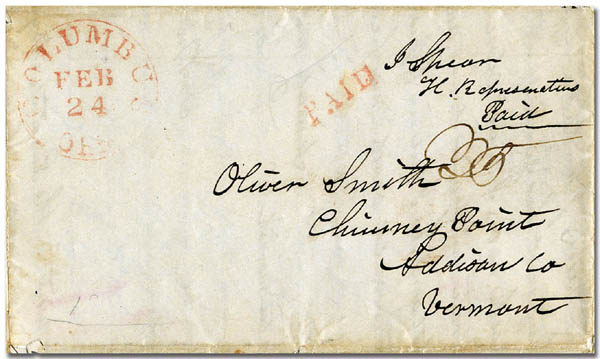 COLUMBUS
FEB
24
OHIO
PAID
I Spear
H. Representatives
Paid
25
Oliver Smith
Chimney Point
Addison Co
Vermont